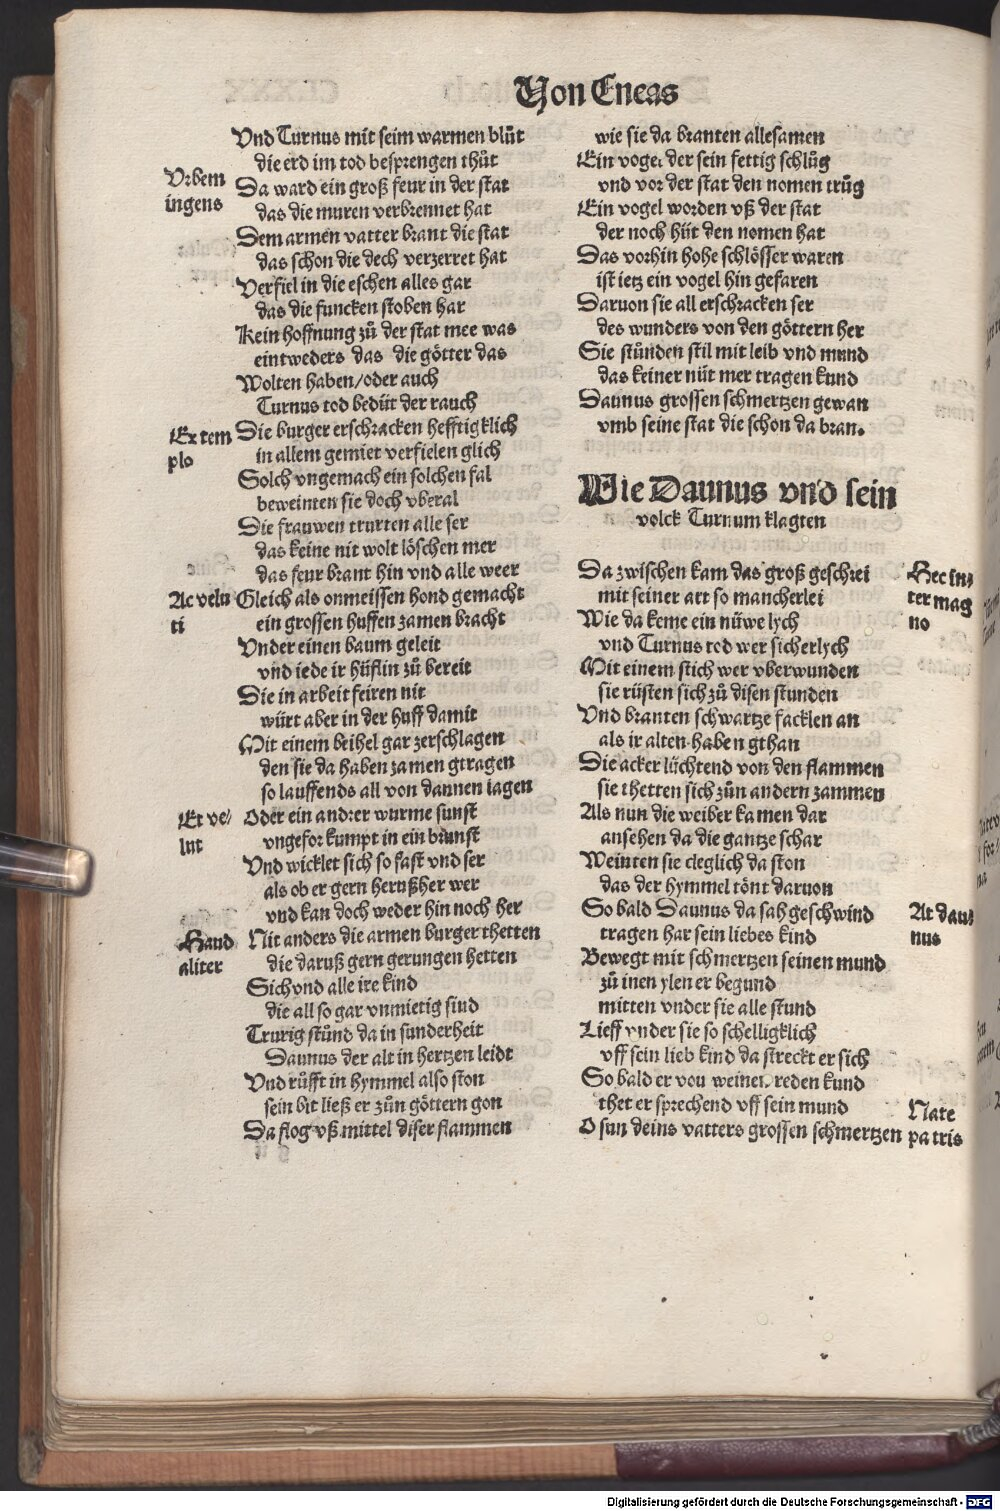 Von Eneas
Vnd Turnus mit seim warmen blůt
die erd im tod besprengen thůt
Vrbem
ingens
Da ward ein groß feur in der stat
das die muren verbrennet hat
Dem armen vatter brant die stat
das schon die dech verzerret hat
Verfiel in die eschen alles gar
das die funcken stoben har
Kein hoffnung zů der stat mee was
eintweders das die götter das
Wolten haben/oder auch
Turnus tod bedüt der rauch
Ex tem
plo
Die burger erschracken hefftigklich
in allem gemiet verfielen glich
Solch vngemach ein solchen fal
beweinten sie doch vberal
Die frauwen trurten alle ser
das keine nit wolt löschen mer
das feur brant hin vnd alle weer
Ac velu
ti
Gleich als onmeissen hond gemacht
ein grossen huffen zamen bracht
Vnder einen baum geleit
vnd iede ir hüflin zů bereit
Die in arbeit feiren nit
würt aber in der huff damit
Mit einem beihel gar zerschlagen
den sie da haben zamen gtragen
so lauffends all von dannen iagen
Et ve/
lut
Oder ein andrer wurme sunst
vngefor kumpt in ein brunst
Vnd wicklet sich so fast vnd ser
als ob er gern herußher wer
vnd kan doch weder hin noch her
Haud
aliter
Nit anders die armen burger thetten
die daruß gern gerungen hetten
Sich vnd alle ire kind
die all so gar vnmietig sind
Trurig stůnd da in sunderheit
Daunus der alt in hertzen leidt
Vnd růfft in hymmel also ston
sein bit ließ er zůn göttern gon
Da flog vß mittel diser flammen
wie sie da branten allesamen
Ein vogel der sein fettig schlůg
vnd vor der stat den nomen trůg
Ein vogel worden vß der stat
der noch hüt den nomen hat
Das vorhin hohe schlösser waren
ist ietz ein vogel hin gefaren
Daruon sie all erschracken ser
des wunders von den göttern her
Sie stůnden stil mit leib vnd mund
das keiner nüt mer tragen kund
Daunus grossen schmertzen gewan
vmb seine stat die schon da bran.
Wie Daunus vnd sein
volck Turnum klagten
Da zwischen kam das groß geschrei
mit seiner art so mancherlei
Hec in/
ter mag
no
Wie da keme ein nüwe lych
vnd Turnus tod wer sicherlych
Mit einem stich wer vberwunden
sie rüsten sich zů disen stunden
Vnd branten schwartze facklen an
als ir alten haben gthan
Die acker lüchtend von den flammen
sie thetten sich zůn andern zammen
Als nun die weiber kamen dar
ansehen da die gantze schar
Weinten sie cleglich da ston
das der hymmel tönt daruon
So bald Daunus da sah geschwind
tragen har sein liebes kind
At dau/
nus
Bewegt mit schmertzen seinen mund
zů inen ylen er begund
mitten vnder sie alle stund
Lieff vnder sie so schelligklich
vff sein lieb kind da streckt er sich
So bald er vou weinen reden kund
thet er sprechend vff sein mund
O sun deins vatters grossen schmertzen
Nate
patris
Digitalisierung gefördert durch die Deutsche Forschungsgemeinschaft - DFG